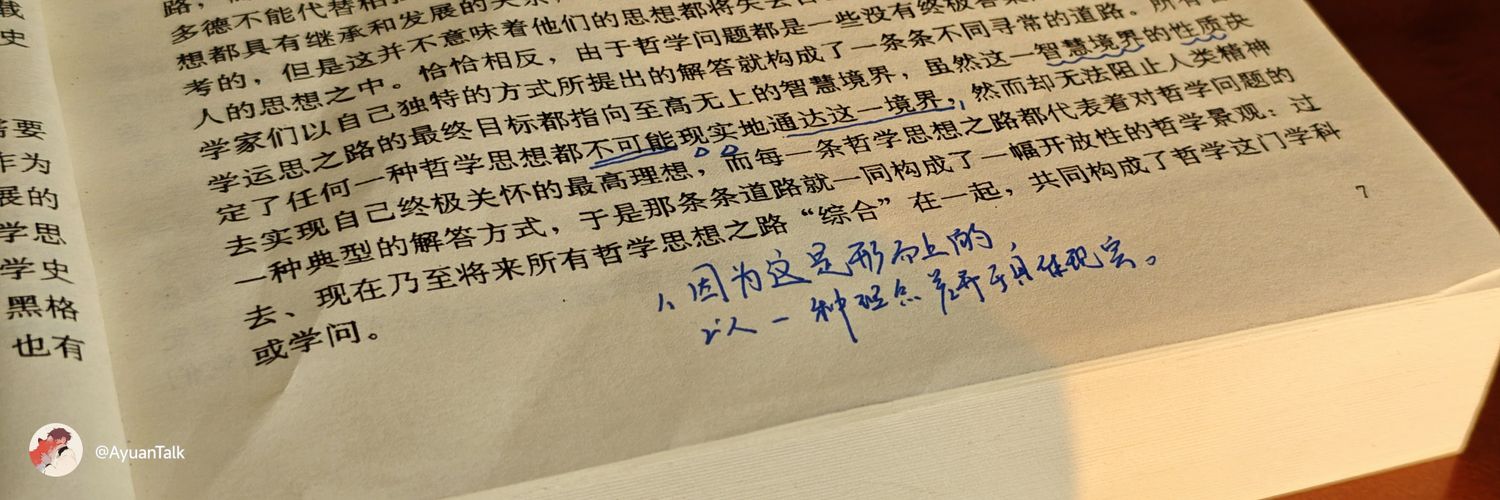 载
史
需要
作为
展的
学思
学史
黑格
也有
多德不能代替柏拉
想都具有继承和发展的关系
考的，但是这并不意味着他们的思想都将失去
人的思想之中。恰恰相反，由于哲学问题都是一些没有终极答案
学家们以自己独特的方式所提出的解答就构成了一条条不同寻常的道路。所有
学运思之路的最终目标都指向至高无上的智慧境界，虽然这一智慧境界的性质决
定了任何一种哲学思想都不可能现实地通达这一境界，然而却无法阻止人类精神
去实现自己终极关怀的最高理想，而每一条哲学思想之路都代表着对哲学问题的
一种典型的解答方式，于是那条条道路就一同构成了一幅开放性的哲学景观：过
去、现在乃至将来所有哲学思想之路“综合”在一起，共同构成了哲学这门学科
或学问。
7
1、因为这是形而上的，
以一种观点差异于具体现实。
@AyuanTalk